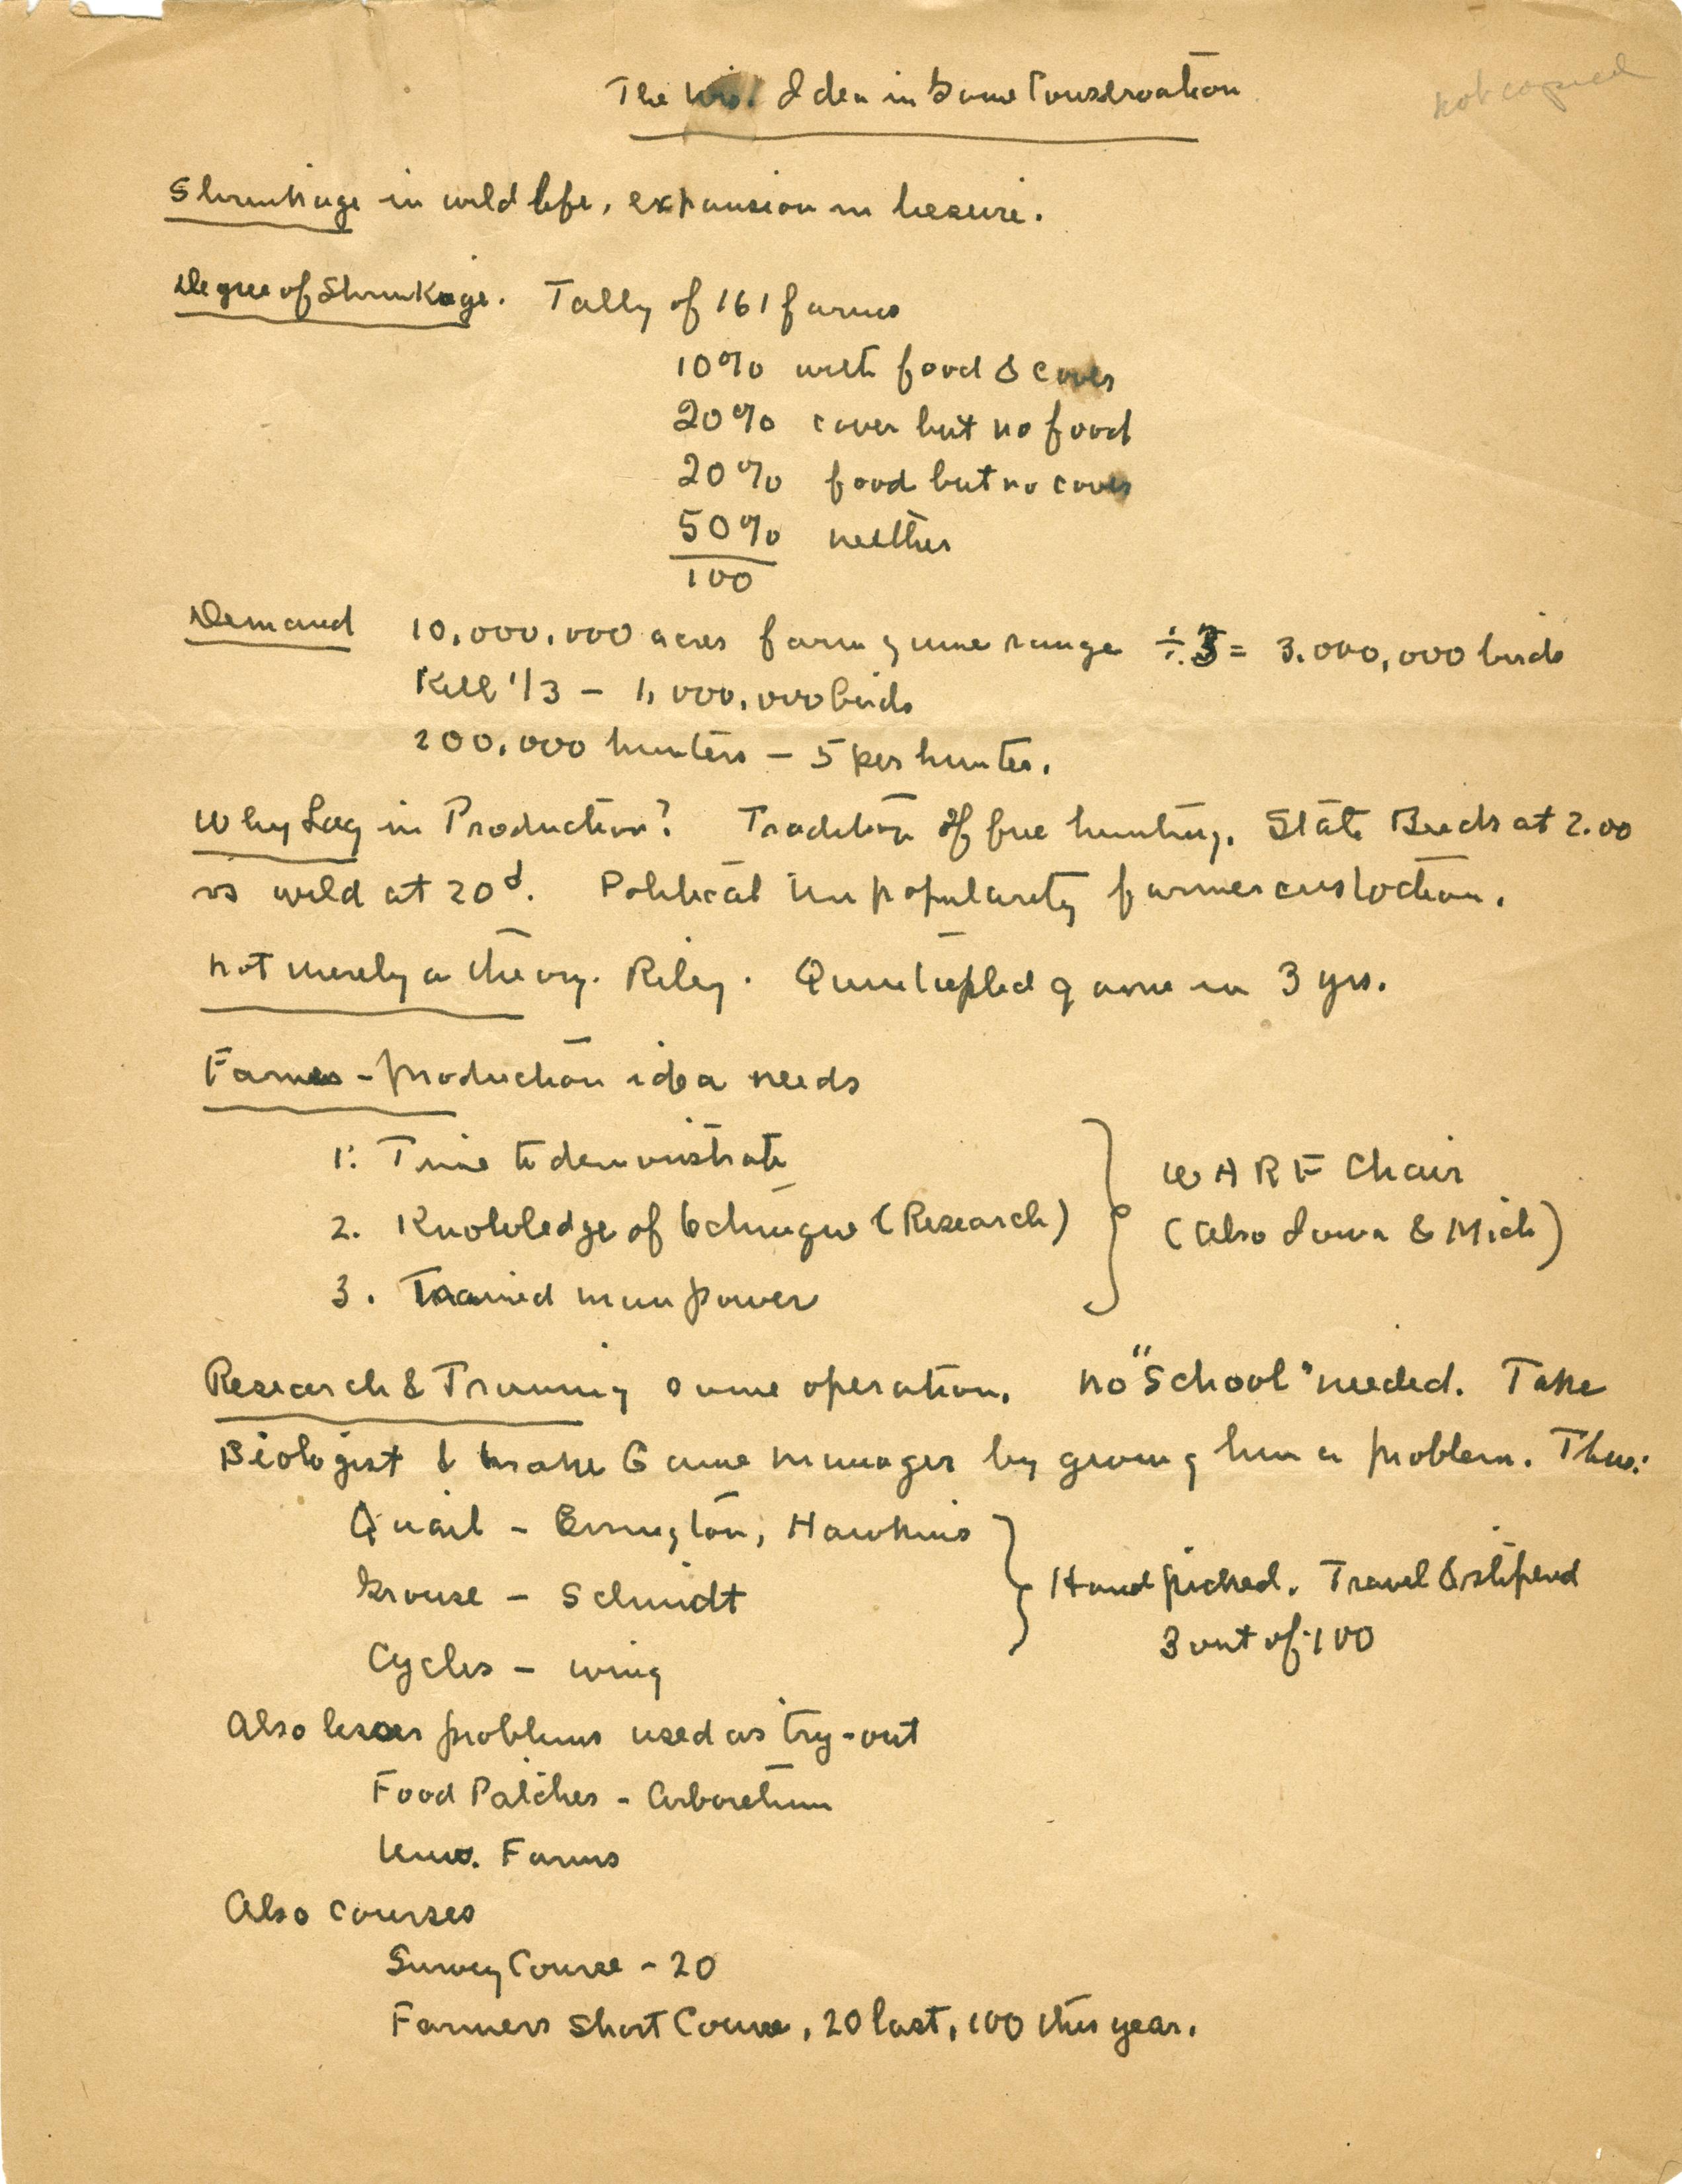 The Wis. Idea in Game Conservation
not copied
Shrinkage in wild life, expansion in leisure.
Degree of Shrinkage. Tally of 161 farms
10% with food & cover
20% cover but no food
20% food but no cover
50% neither
100
Demand 10,000,000 acres farm game range ÷ 3 = 3,000,000 birds
Kill 1/3 - 1,000,000 birds
200,000 hunters - 5 per hunter.
Why Lag in Production? Tradition of free hunting. State Birds at 2.00
vs wild at 20¢. Political unpopularity farmer custodian.
Not merely a theory. Riley. Quintupled game in 3 yrs.
Farmer-production idea needs
1. Time to demonstrate
2. Knowledge of technique (Research)
3. Trained man power
WARF Chair
(Also Iowa & Mich)
Research & Training same operation. No "School" needed. Take
Biologist & make Game manager by giving him a problem. Thus:
Quail - Errington, Hawkins
Grouse - Schmidt
Cycles - Wing
Hand picked. Travel & stipend
3 out of 100
Also lesser problems used as try-out
Food Patches - Arboretum
Univ. Farms
Also courses
Survey Course - 20
Farmers Short Course, 20 last, 100 this year.